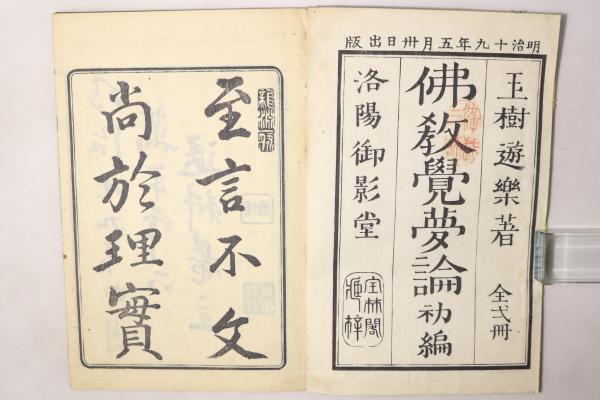 明治十九年五月卅日出版
玉樹遊樂著 全弍冊
佛教覺夢論初編
洛陽御影堂
宝林閣
蔵梓
至言不文
尚於理實